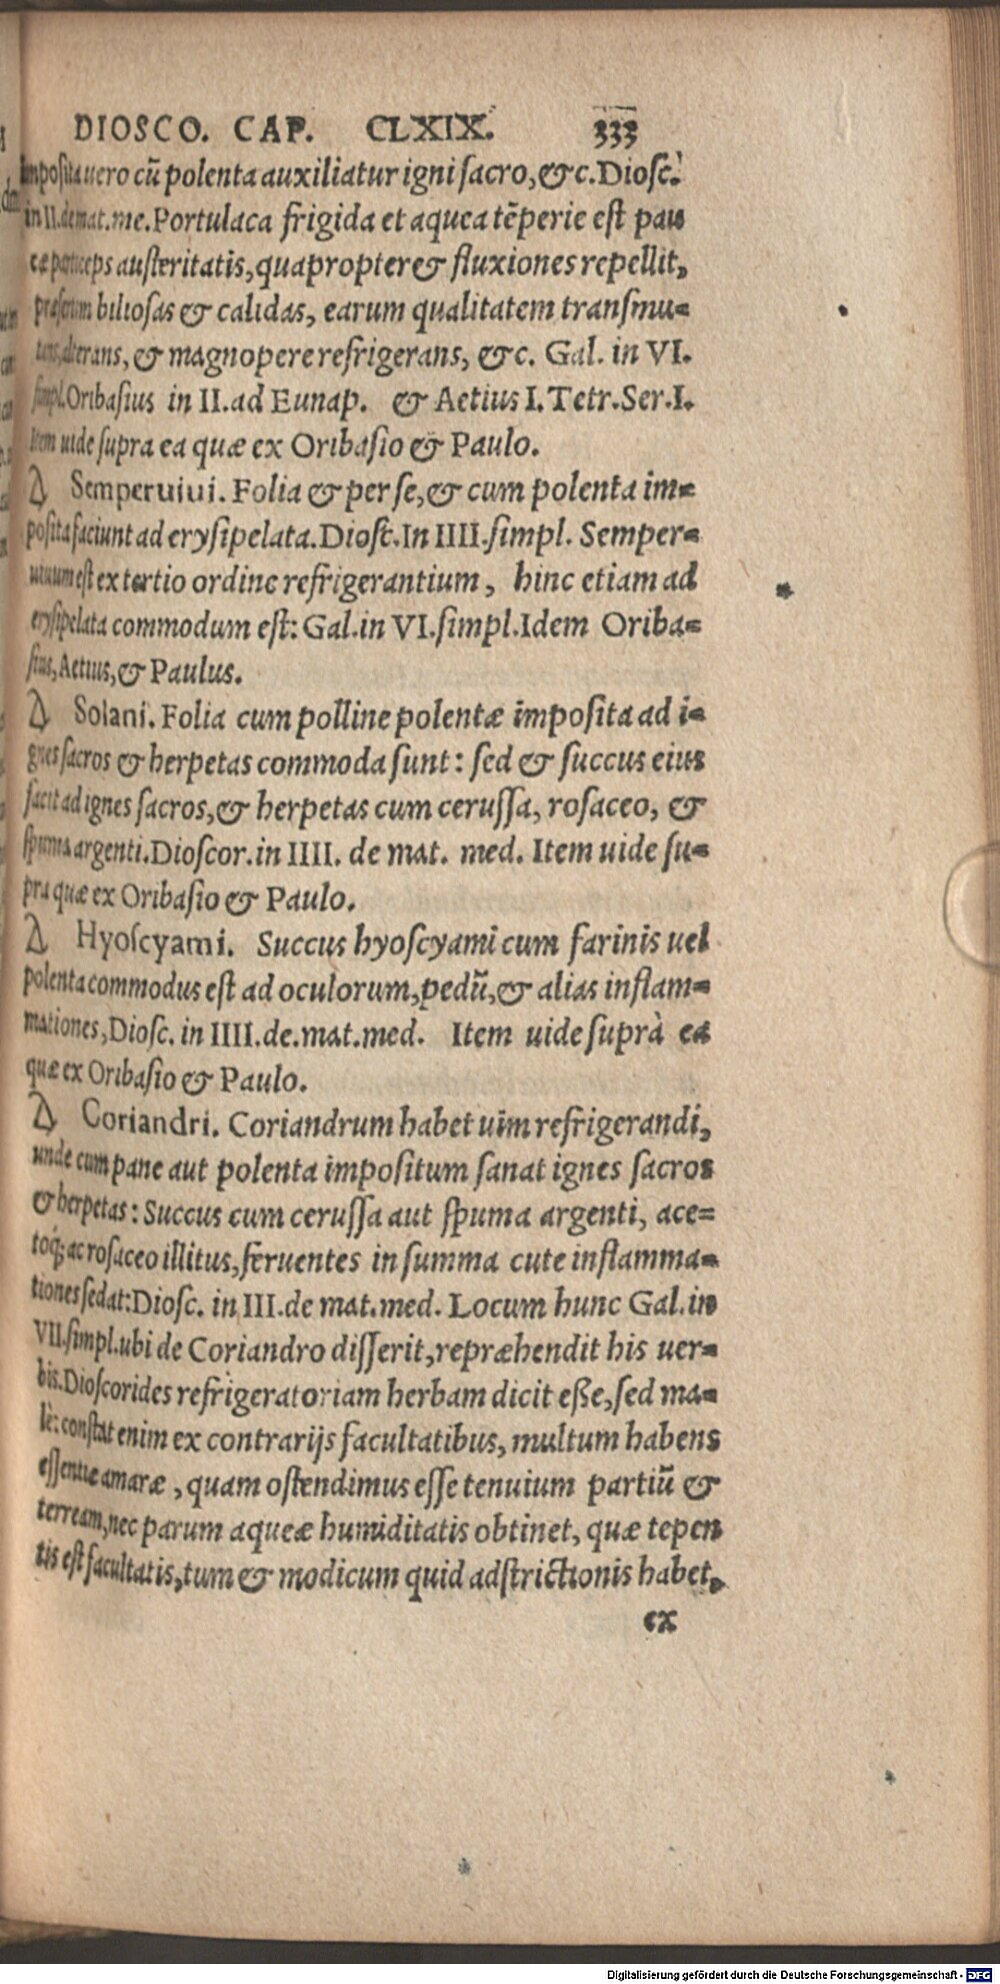 DIOSCO. CAP. CLXIX. 333
imposita uero cū polenta auxiliatur igni sacro, &c. Diosc.
in II. de mat. me. Portulaca frigida et aquea tēperie est pau
cæ particeps austeritatis, quapropter & fluxiones repellit,
præsertim biliosas & calidas, earum qualitatem transmu-
tans, alterans, & magnopere refrigerans, &c. Gal. in VI.
simpl. Oribasius in II. ad Eunap. & Aetius I. Tetr. Ser. I.
Item uide supra ea quæ ex Oribasio & Paulo.
Δ Semperuiui. Folia & per se, & cum polenta im-
posita faciunt ad erysipelata. Diosc. In IIII. simpl. Semper-
uiuum est ex tertio ordine refrigerantium, hinc etiam ad
erysipelata commodum est: Gal. in VI. simpl. Idem Oriba-
sius, Aetius, & Paulus.
Δ Solani. Folia cum polline polentæ imposita ad i-
gnes sacros & herpetas commoda sunt: sed & succus eius
facit ad ignes sacros, & herpetas cum cerussa, rosaceo, &
spuma argenti. Dioscor. in IIII. de mat. med. Item uide su-
pra quæ ex Oribasio & Paulo.
Δ Hyoscyami. Succus hyoscyami cum farinis uel
polenta commodus est ad oculorum, pedū, & alias inflam-
mationes, Diosc. in IIII. de. mat. med. Item uide suprà ea
quæ ex Oribasio & Paulo.
Δ Coriandri. Coriandrum habet uim refrigerandi,
unde cum pane aut polenta impositum sanat ignes sacros
& herpetas: Succus cum cerussa aut spuma argenti, ace-
toq; ac rosaceo illitus, feruentes in summa cute inflamma-
tiones sedat: Diosc. in III. de mat. med. Locum hunc Gal. in
VII. simpl. ubi de Coriandro disserit, repræhendit his uer-
bis. Dioscorides refrigeratoriam herbam dicit eße, sed ma-
lè: constat enim ex contrarijs facultatibus, multum habens
essentiæ amaræ, quam ostendimus esse tenuium partiū &
terream, nec parum aqueæ humiditatis obtinet, quæ tepen
tis est facultatis, tum & modicum quid adstrictionis habet,
ex
Digitalisierung gefördert durch die Deutsche Forschungsgemeinschaft - DFG